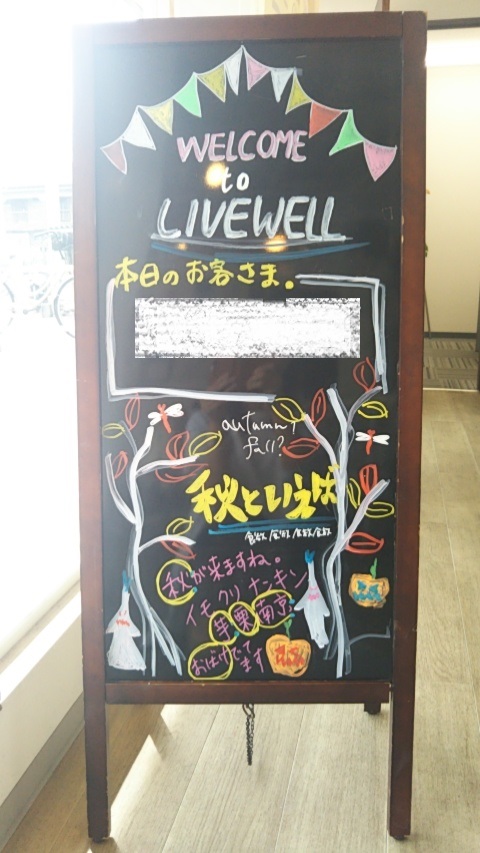 WELCOME
to
LIVEWELL
本日のお客さま。
autumn?
fall?
秋といえば
秋が来ますね。
イモ クリ ナンキン
芋栗南京
おばけでてます